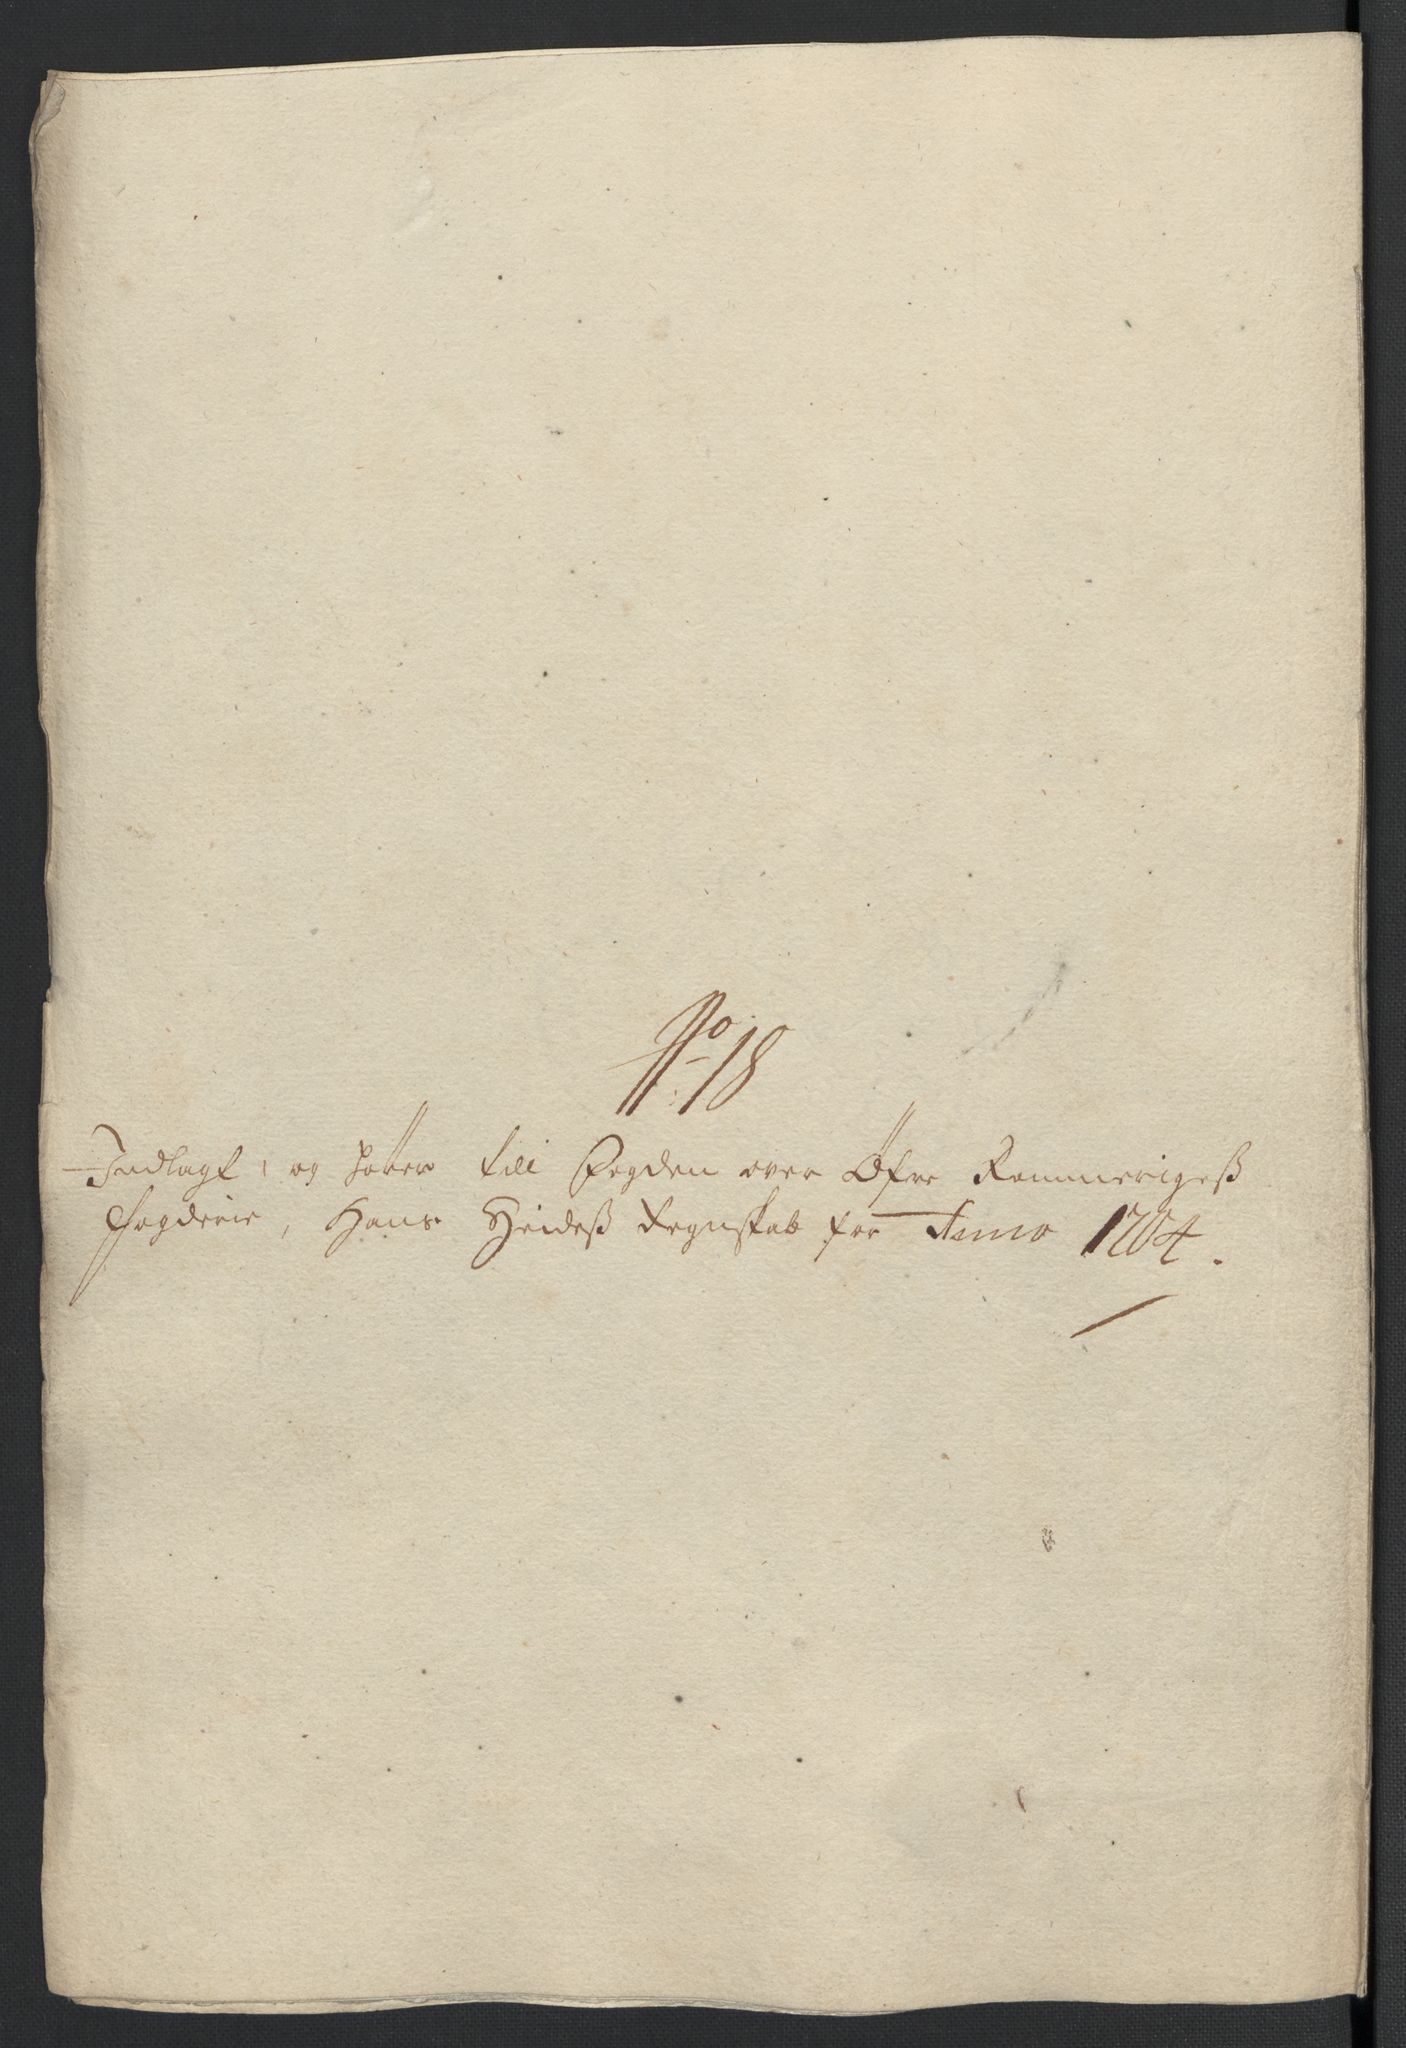 No: 18
Indlagt, og hører till Fogden over Øfre Rommerigeß
Fogderie, Hans Heideß Regnskab for Anno 1704.